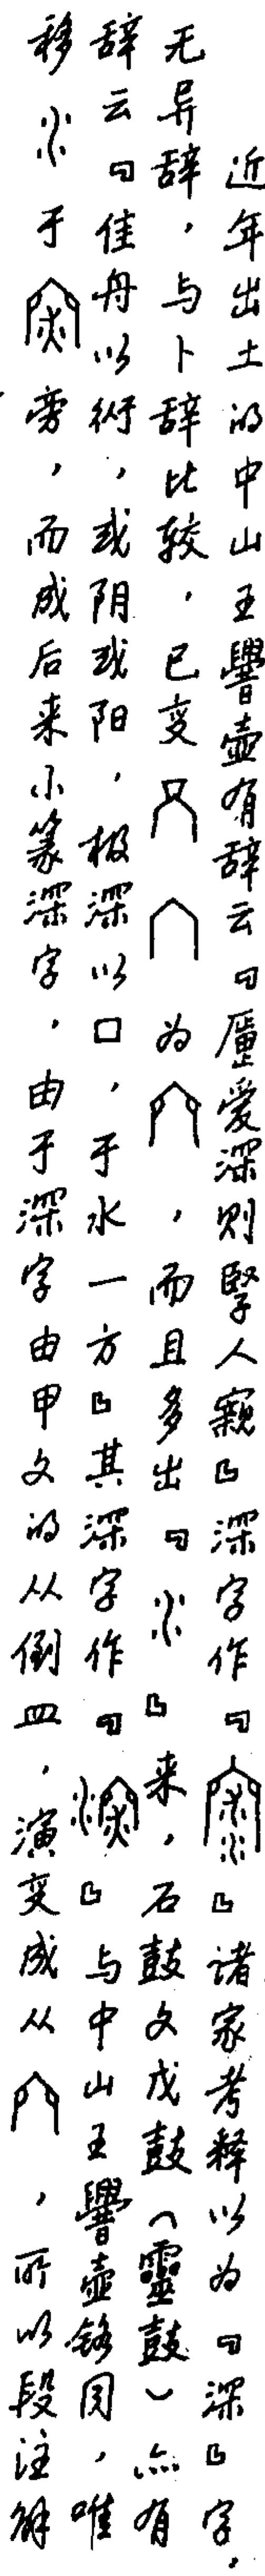 近年出土的中山王壺有辞云「愛深则孯人寴」深字作「」诸家考释以为「深」字，
无异辞，与卜辞比较，已变为，而且多出「」来，石鼓文戊鼓（靈鼓）亦有
辞云「佳舟以衍，或阴或阳，极深以口，于水一方」其深字作「」与中山王壺铭同，唯
移于旁，而成后来小篆深字，由于深字由甲文的从倒皿，演变成从，所以段注解